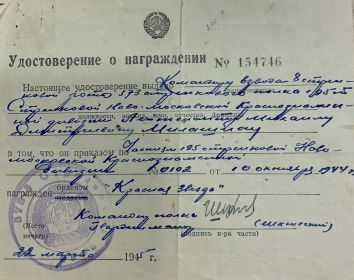 Удостоверение о награждении № 154746
Настоящее удостоверение выдано Командиру взвода 8 стрел-
ковой роты 573 стрелкового полка 195
Стрелковой Ново-Московской Краснознамен-
ной дивизии Михаилу
Дмитриевичу
в том, что он приказом по Частям 195 стрелковой Ново-
московской Краснознаменной
дивизии №0102 от 10 октября 1944 г.
награжден орденом "Красная Звезда"
Командир полка
(Место
печати)
подпись к-ра части)
22 марта 1945 г.